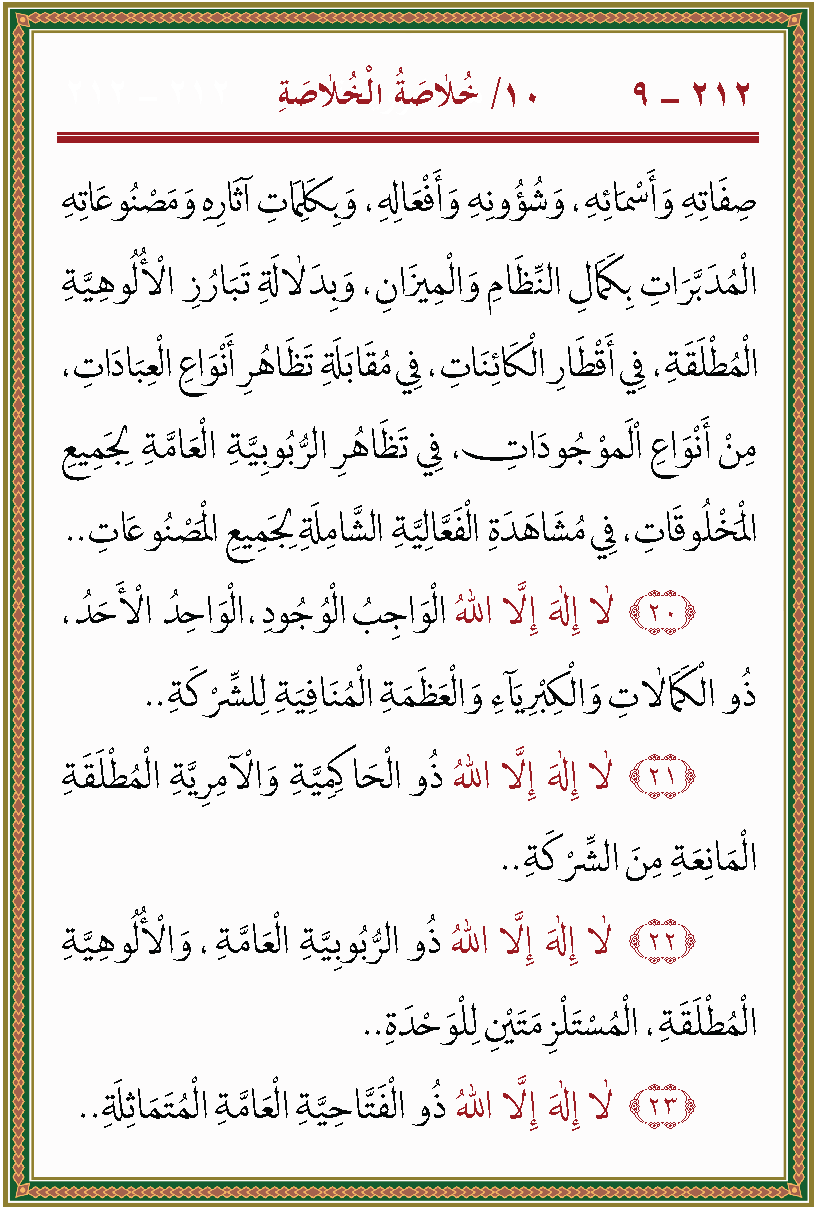 ٢١٢ ــ ٩ ١٠/ خُلَاصَةُ الْخُلَاصَةِ ٢١٢ ــ ٢١٢
صِفَاتِهِ وَأَسْمَائِهِ ، وَشُؤُونِهِ وَأَفْعَالِهِ ، وَبِكَلِمَاتِ آثَارِهِ وَمَصْنُوعَاتِهِ
الْمُدَبَّرَاتِ بِكَمَالِ النِّظَامِ وَالْمِيزَانِ ، وَبِدَلَالَةِ تَبَارُزِ الْأُلُوهِيَّةِ
الْمُطْلَقَةِ ، فِي أَقْطَارِ الْكَائِنَاتِ ، فِي مُقَابَلَةِ تَظَاهُرِ أَنْوَاعِ الْعِبَادَاتِ ،
مِنْ أَنْوَاعِ الْمَوْجُودَاتِ ، فِي تَظَاهُرِ الرُّبُوبِيَّةِ الْعَامَّةِ لِجَمِيعِ
الْمَخْلُوقَاتِ ، فِي مُشَاهَدَةِ الْفَعَّالِيَّةِ الشَّامِلَةِ لِجَمِيعِ الْمَصْنُوعَاتِ..
﴿٢٠﴾ لَا إِلٰهَ إِلَّا اللهُ الْوَاجِبُ الْوُجُودِ ، الْوَاحِدُ الْأَحَدُ ،
ذُو الْكَمَالَاتِ وَالْكِبْرِيَآءِ وَالْعَظَمَةِ الْمُنَافِيَةِ لِلشِّرْكَةِ..
﴿٢١﴾ لَا إِلٰهَ إِلَّا اللهُ ذُو الْحَاكِمِيَّةِ وَالْآمِرِيَّةِ الْمُطْلَقَةِ
الْمَانِعَةِ مِنَ الشِّرْكَةِ..
﴿٢٢﴾ لَا إِلٰهَ إِلَّا اللهُ ذُو الرُّبُوبِيَّةِ الْعَامَّةِ ، وَالْأُلُوهِيَّةِ
الْمُطْلَقَةِ ، الْمُسْتَلْزِمَتَيْنِ لِلْوَحْدَةِ..
﴿٢٣﴾ لَا إِلٰهَ إِلَّا اللهُ ذُو الْفَتَّاحِيَّةِ الْعَامَّةِ الْمُتَمَاثِلَةِ..